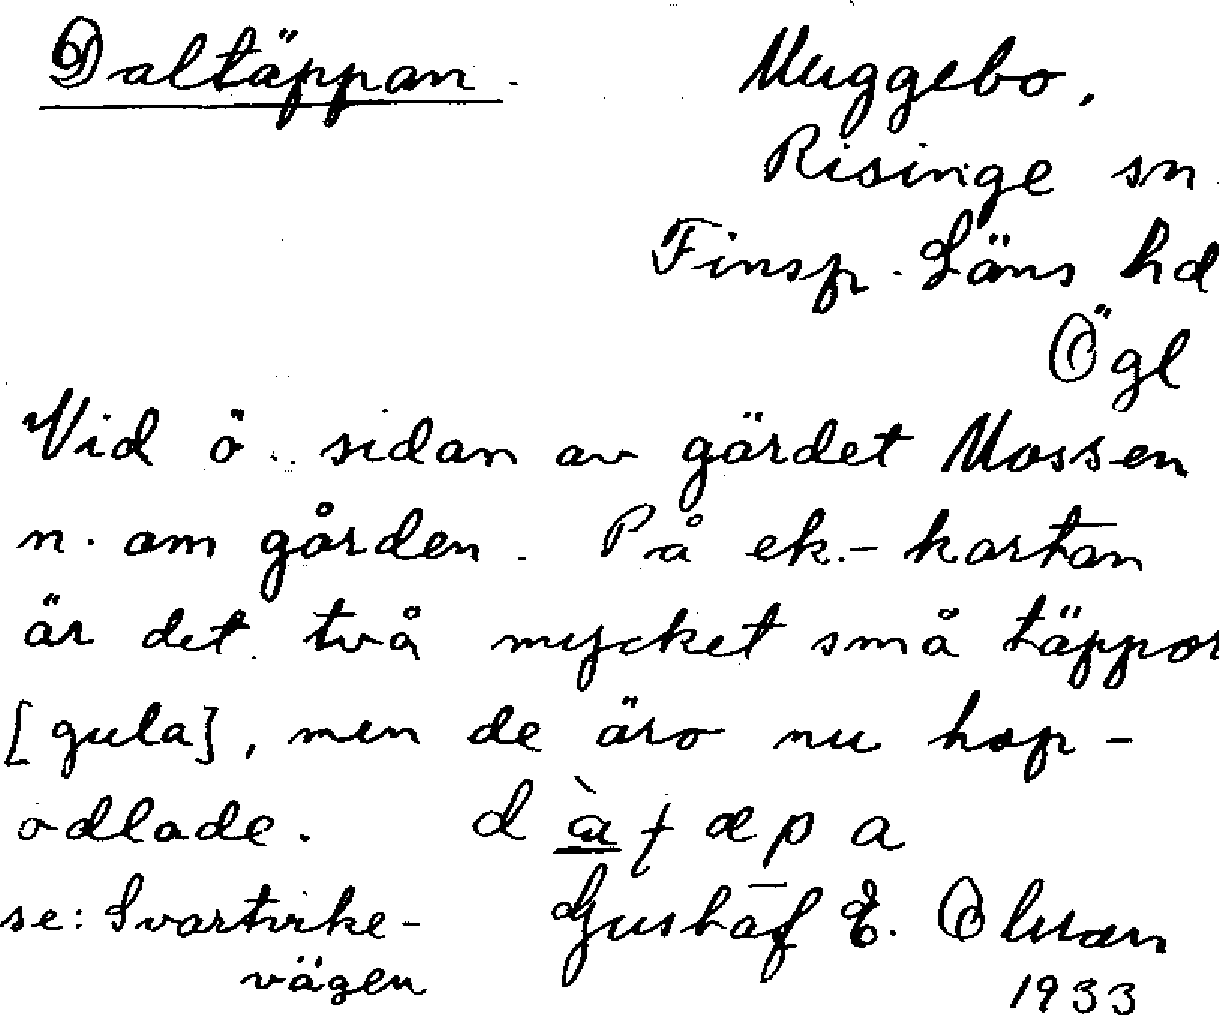 Daltäppan. Muggebo,
Risinge sn.
Finsp. Läns hd
Ögl
Vid ö. sidan av gärdet Mossen
n. om gården. På ek.-kartan
är det två mycket små täppor
[gula], men de äro nu hop-
odlade. d à ƭ æ p a
se: Svartvike- Gustaf E. Olsson
vägen 1933